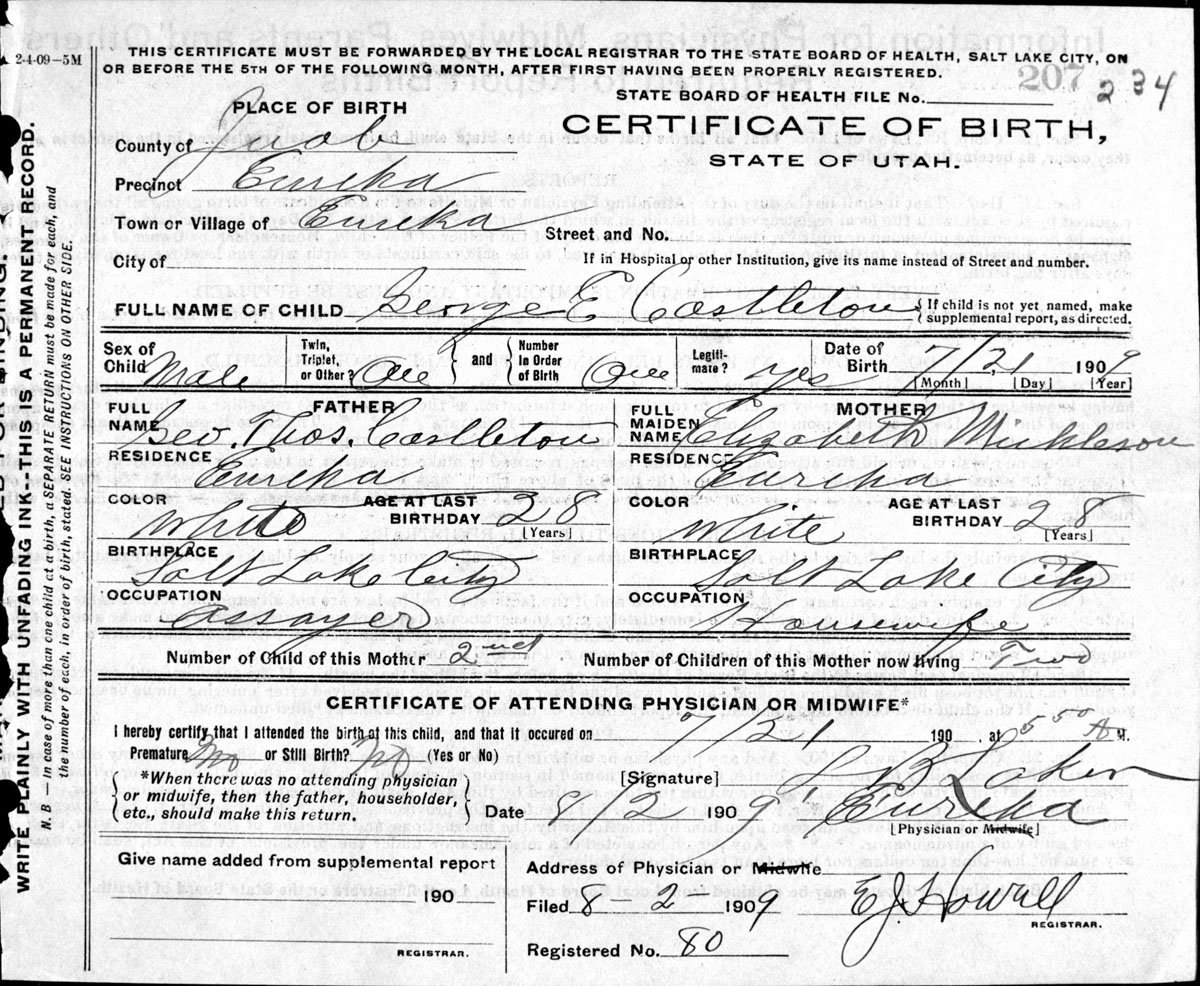 2-4-09—5M
THIS CERTIFICATE MUST BE FORWARDED BY THE LOCAL REGISTRAR TO THE STATE BOARD OF HEALTH, SALT LAKE CITY, ON
OR BEFORE THE 5TH OF THE FOLLOWING MONTH, AFTER FIRST HAVING BEEN PROPERLY REGISTERED.
207 234
STATE BOARD OF HEALTH FILE No.
PLACE OF BIRTH
CERTIFICATE OF BIRTH,
STATE OF UTAH.
County of Juab
Precinct Eureka
Town or Village of Eureka
Street and No.
City of
If in Hospital or other Institution, give its name instead of Street and number.
FULL NAME OF CHILD George E Castleton
If child is not yet named, make
supplemental report, as directed.
Sex of Child Male
Twin, Triplet, or Other? One
and
Number in Order of Birth One
Legitimate? yes
Date of Birth 7/21 1909
[Month] [Day] [Year]
FATHER
FULL NAME Geo. Thos. Castleton
RESIDENCE Eureka
COLOR White
AGE AT LAST BIRTHDAY 28
[Years]
BIRTHPLACE Salt Lake City
OCCUPATION Assayer
MOTHER
FULL MAIDEN NAME Elizabeth
RESIDENCE Eureka
COLOR White
AGE AT LAST BIRTHDAY 28
[Years]
BIRTHPLACE Salt Lake City
OCCUPATION Housewife
Number of Child of this Mother 2nd
Number of Children of this Mother now living Two
CERTIFICATE OF ATTENDING PHYSICIAN OR MIDWIFE*
I hereby certify that I attended the birth of this child, and that it occured on 7/21 190 , at 5 50 A M.
Premature No or Still Birth? No (Yes or No)
*When there was no attending physician
or midwife, then the father, householder,
etc., should make this return.
[Signature]
Date 8/2 1909
Eureka
[Physician or Midwife]
Give name added from supplemental report
190
REGISTRAR.
Address of Physician or Midwife
Filed 8-2-1909 E.J. Howell
REGISTRAR.
Registered No. 80
WRITE PLAINLY WITH UNFADING INK--THIS IS A PERMANENT RECORD.
N. B.—In case of more than one child at a birth, a SEPARATE RETURN must be made for each, and
the number of each, in order of birth, stated. SEE INSTRUCTIONS ON OTHER SIDE.